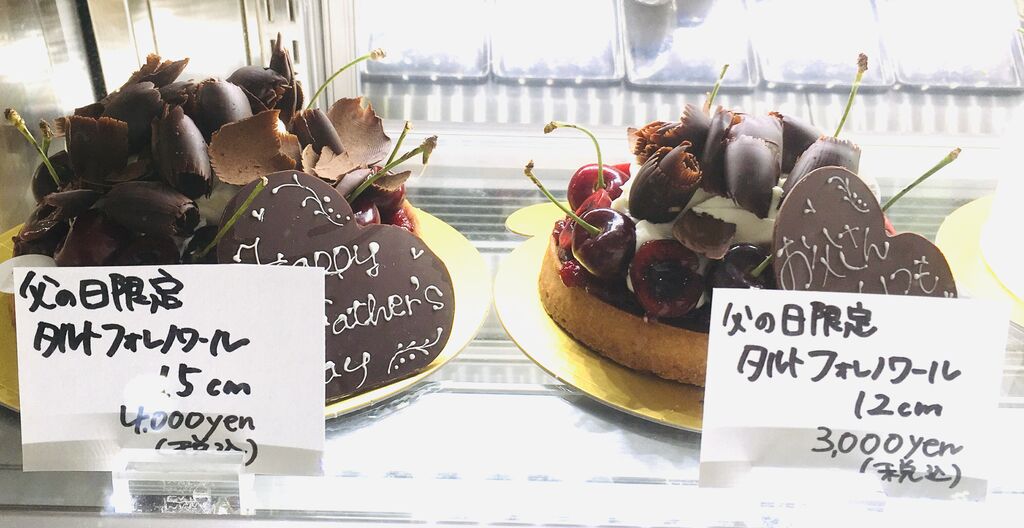 Happy
Father's
Day
父の日限定
タルトフォレノワール
15cm
4,000yen
(税込)
お父さん
いつも
父の日限定
タルトフォレノワール
12cm
3,000yen
(税込)